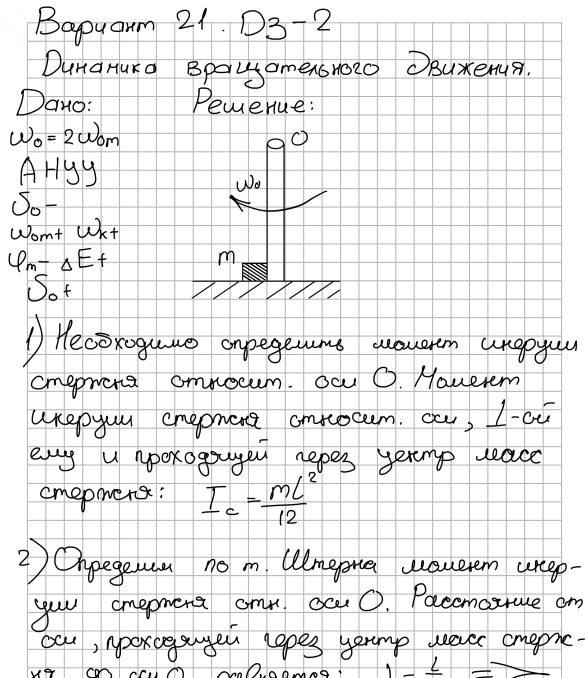 Вариант 21. ДЗ-2
Динамика вращательного движения.
Дано: Решение:
ω₀ = 2ω₀m
АНУУ
S₀ -
ω₀m+ ωк+
φm- ΔE+
S₀ +
O
ω₀
m
1) Необходимо определить момент инерции
стержня относит. оси O. Момент
инерции стержня относит. оси, ⊥-ой
ему и проходящей через центр масс
стержня: I_c = ml²/12
2) Определим по т. Штерна момент инер-
ции стержня отн. оси O. Расстояние от
оси, проходящей через центр масс стерж-
ня до оси O